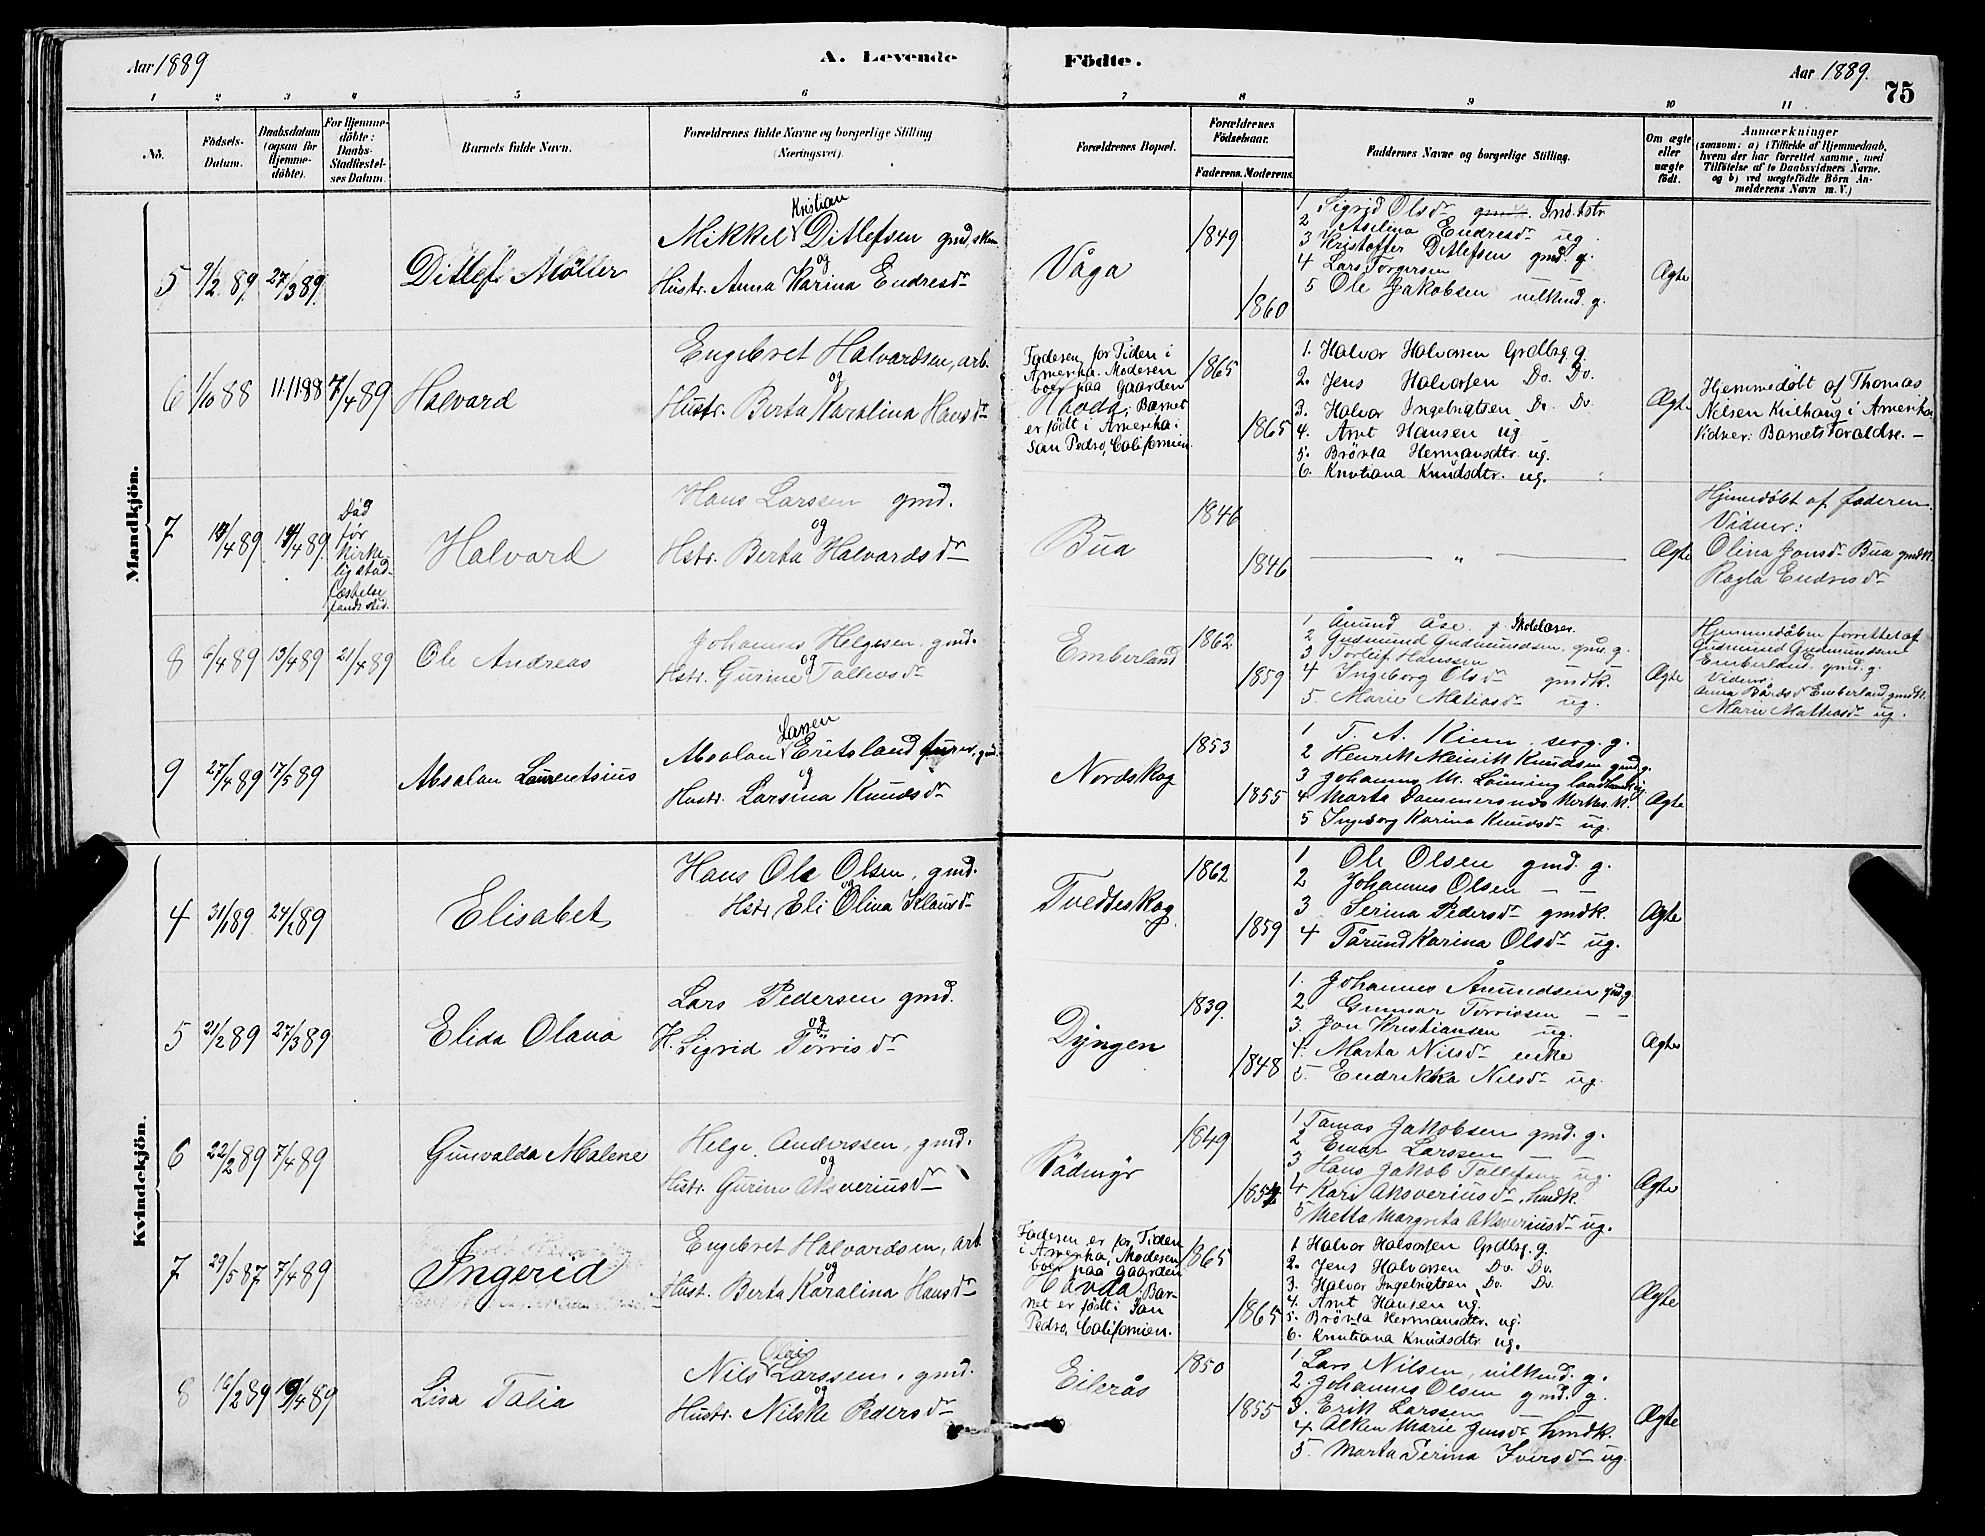 Aar 1889
A. Levende
Födte.
Aar 1889.
75
1 2 3 4 5 6 7 8 9 10 11
No.
Födsels-
Datum.
Daabsdatum
(ogsaa for
Hjemme-
döbte).
For Hjemme-
döbte:
Daabs-
Stadfæstel-
ses Datum.
Barnets fulde Navn.
Forældrenes fulde Navne og borgerlige Stilling
(Næringsvei).
Forældrenes Bopæl.
Forældrenes
Födselsaar.
Faderens. Moderens.
Faddernes Navne og borgerlige Stilling.
Om ægte
eller
uægte
födt.
Anmærkninger
(saasom: a) i Tilfælde af Hjemmedaab,
hvem der har forrettet samme, med
Tilföielse af to Daabsvidners Navne,
og b) ved uægtefödte Börn An-
melderens Navn m. V.)
Mandkjön.
5 9/2 89 27/3 89
Ditlef Møller
Kristian
Mikkel Ditlefsen gmd,
og
Hustr. Anna Karina Endresdr
Våga
1849
1860
1 Sigrid Olsdr
2 Aselina Endresdr ug.
3 Kristoffer Ditlefsen gmd. g.
4 Lars Torgersen
5 Ole Jakobsen g.
Ægte
6 1/10 88 11/11 88 7/4 89
Halvard
Engebret Halvardsen, arb.
og
Hustr. Berta Karalina Hansdr
Faderen for Tiden i
Amerika. Moderen
boer paa Gaarden
Havda; Barnet
er født i Amerika i
San Pedro, Californien.
1865
1865
1. Halvor Halvorsen Grdbrg. g.
2. Jens Halvorsen Do. Do.
3. Halvor Ingebrigtsen Do. Do.
4. Arnt Hansen ug
5. Brönla Hermansdtr. ug.
6. Knutiana Knudsdtr. ug.
Ægte
Hjemmedøbt af Thomas
Nelsen Kvilhaug i Amerika
Vidner: Barnets Foraldre. –
7 /4 89 14/4 89
Død
før
kirke-
lig stad-
fæstelse
fandt sted.
Halvard
Hans Larssen gmd.
og
Hstr. Berta Halvardsdr
Bua
1846
1846
— " —
Ægte
Hjemmedøbt af faderen.
Vidner:
Olina Jonsdr Bua gmdk.
Ragla Endresdr
8 6/4 89 13/4 89 21/4 89
Ole Andreas
Johannes Helgesen, gmd.
og
Hstr. Gurine Tollevsdr
Emberland
1862
1859
1 Åmund Åse. g. Skolelærer.
2 Gudmund Gudmundsen, gmd. g.
3 Torleif Hanssen
4 Ingeborg Olsdr gmdk.
5. Marie Matiasdr ug.
Ægte
Hjemmedåben forrettet af
Gudmund Gudmundsen
Emberland, gmd. g.
Vidner:
Anna Bårdsdr Emberland gmdk.
Marie Mathiasdr ug.
9 27/4 89 17/5 89
Absalon Laurentsius
Larsen
Absalon Eritsland
og
Hustr. Larsina Knudsdr
Nordskog
1853
1855
1 T. A. Kinn, serg. g.
2 Henrik Meinik Knudsen gmd. g.
3 Johannes M. Lönning
4 Marta Dammersnes
5 Ingeborg Karina Knudsdr ug.
Ægte
Kvindekjön.
4 31/1 89 24/2 89
Elisabet
Hans Ole Olsen, gmd.
og
Hstr Eli Olina Klausdr
Tvedteskog
1862
1859
1 Ole Olsen gmd. g.
2 Johannes Olsen — —
3 Serina Pedersdr gmdk.
4 Tårund Karina Olsdr ug.
Ægte
5 21/2 89 27/3 89
Elida Olava
Lars Pedersen gmd.
og
H. Sigrid Tørrisdr
Dyngen
1839.
1848
1. Johannes Åmundsen gmd. g.
2. Gunnar Torrissen — —
3. Jon Kristiansen ug.
4. Marta Nilsdr enke
5. Endrikka Nilsdr ug.
Ægte
6 22/2 89 7/4 89
Gunvalda Malene
Helge Anderssen, gmd.
og
Hustr. Gurine Aksveriusdr
Rådmyr
1849
1854
1 Tomas Jakobsen gmd. g.
2 Einar Larssen — —
3 Hans Jakob Tollefsen ug.
4 Kari Aksveriusdr, hmdk.
5 Metta Margreta Aksveriusdr ug.
Ægte
7 29/5 87 7/4 89
Ingerid
Engebret Halvardsen, arb
og
Hust. Berta Karalina Hansdr
Faderen er for Tiden
i Amerika, Moderen
boer paa Gaarden
Havda; Bar-
net er født i San
Pedro, Californien.
1865
1865
1 Halvor Halvorsen Grdbrg. g.
2. Jens Halvorsen Do. Do.
3. Halvor Ingebrigtsen Do. Do.
4. Arnt Hansen ug.
5. Brönla Hermansdtr. ug.
6. Knutiana Knudsdtr ug.
Ægte
8 16/2 89 19/4 89
Lisa Talia
Nils Larssen, gmd.
og
Hustr. Nilske Pedersdr
Eilerås
1850
1855
1 Lars Nilsen, g.
2. Johannes Olsen gmd. g.
3. Erik Larssen — —
4 Alken Marie Jensdr hmdk.
5. Marta Serina Iversdr ug.
Ægte